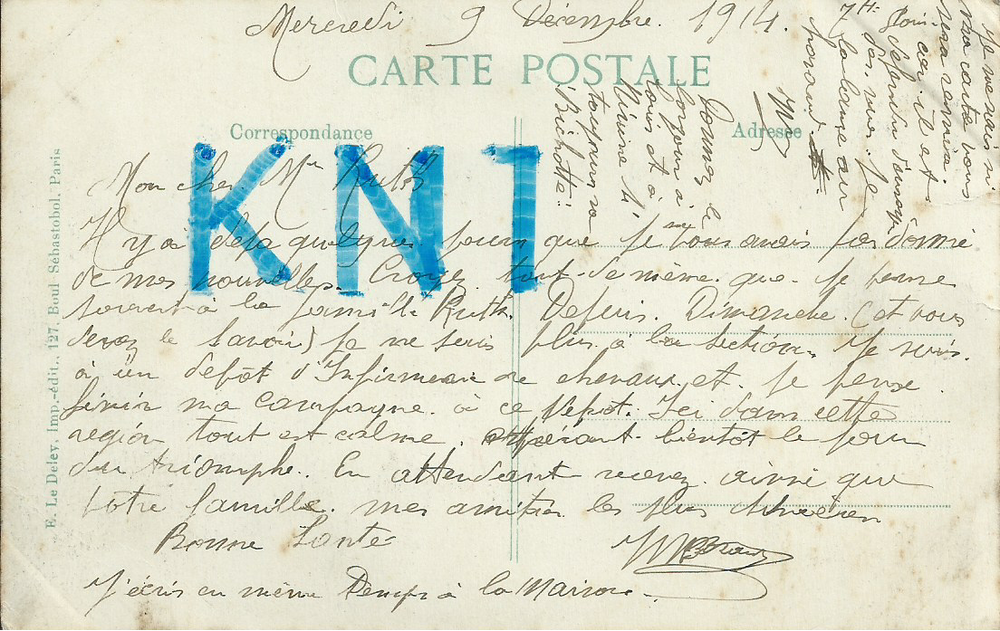 Mercredi 9 Décembre. 1914.
CARTE POSTALE
Correspondance
Adresse
KN1
E. Le Deley, Imp.-édit., 127, Boul Sébastobol, Paris
Mon cher Mr Ruth
Il y à déja quelques jours que je vous avais pas donné
de mes nouvelles. Croyez tout-de même que je pense
souvent à la famille Ruth. Depuis Dimanche (et vous
devez le savoir) je ne suis plus à la section. Je suis
à un depôt d'Infirmerie de chevaux et je pense
finir ma campagne à ce depot. Ici dans cette
region tout est calme. bientôt le jour
du triomphe. En attendant recevez ainsi que
votre famille mes amitiés les plus sincères
Bonne Santé
J'écris en même temps à la Maison.
Donnez le
bonjour à
tous et à
toujours sa
ma carte vous
sera remise.
car il est
defendu